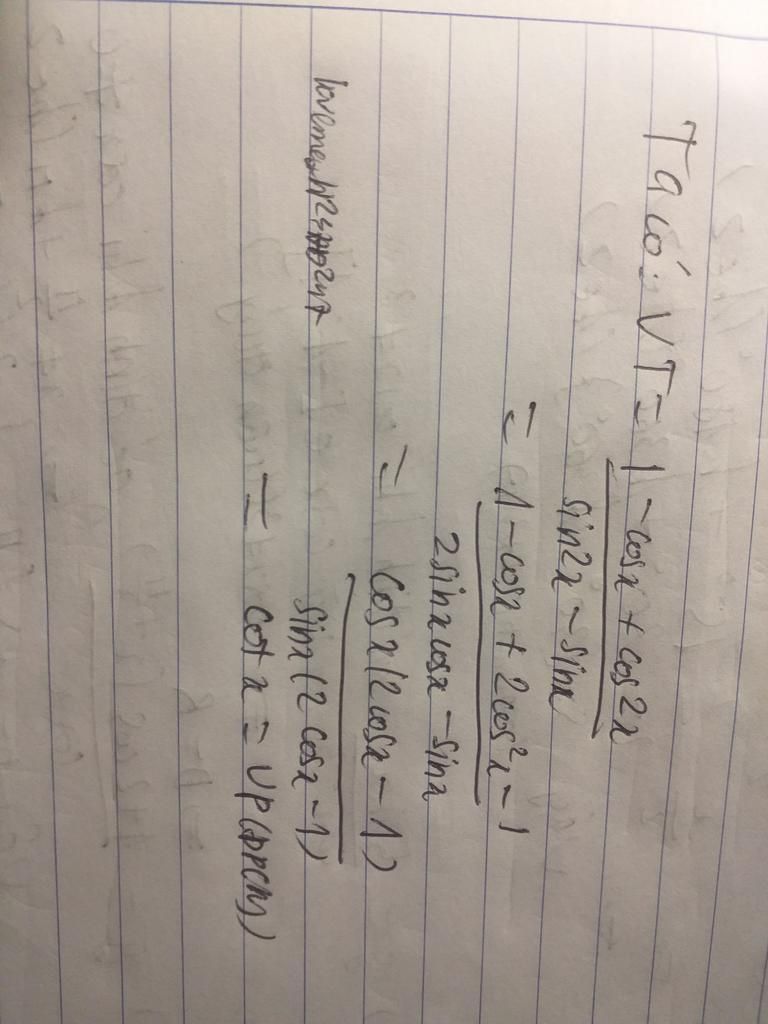 Ta có: VT = 1 - cosx + cos2x
sin2x - sinx
= 1 - cosx + 2cos²x - 1
2sinxcosx - sinx
= cosx(2cosx - 1)
sinx(2cosx - 1)
= cotx = VP(đpcm)